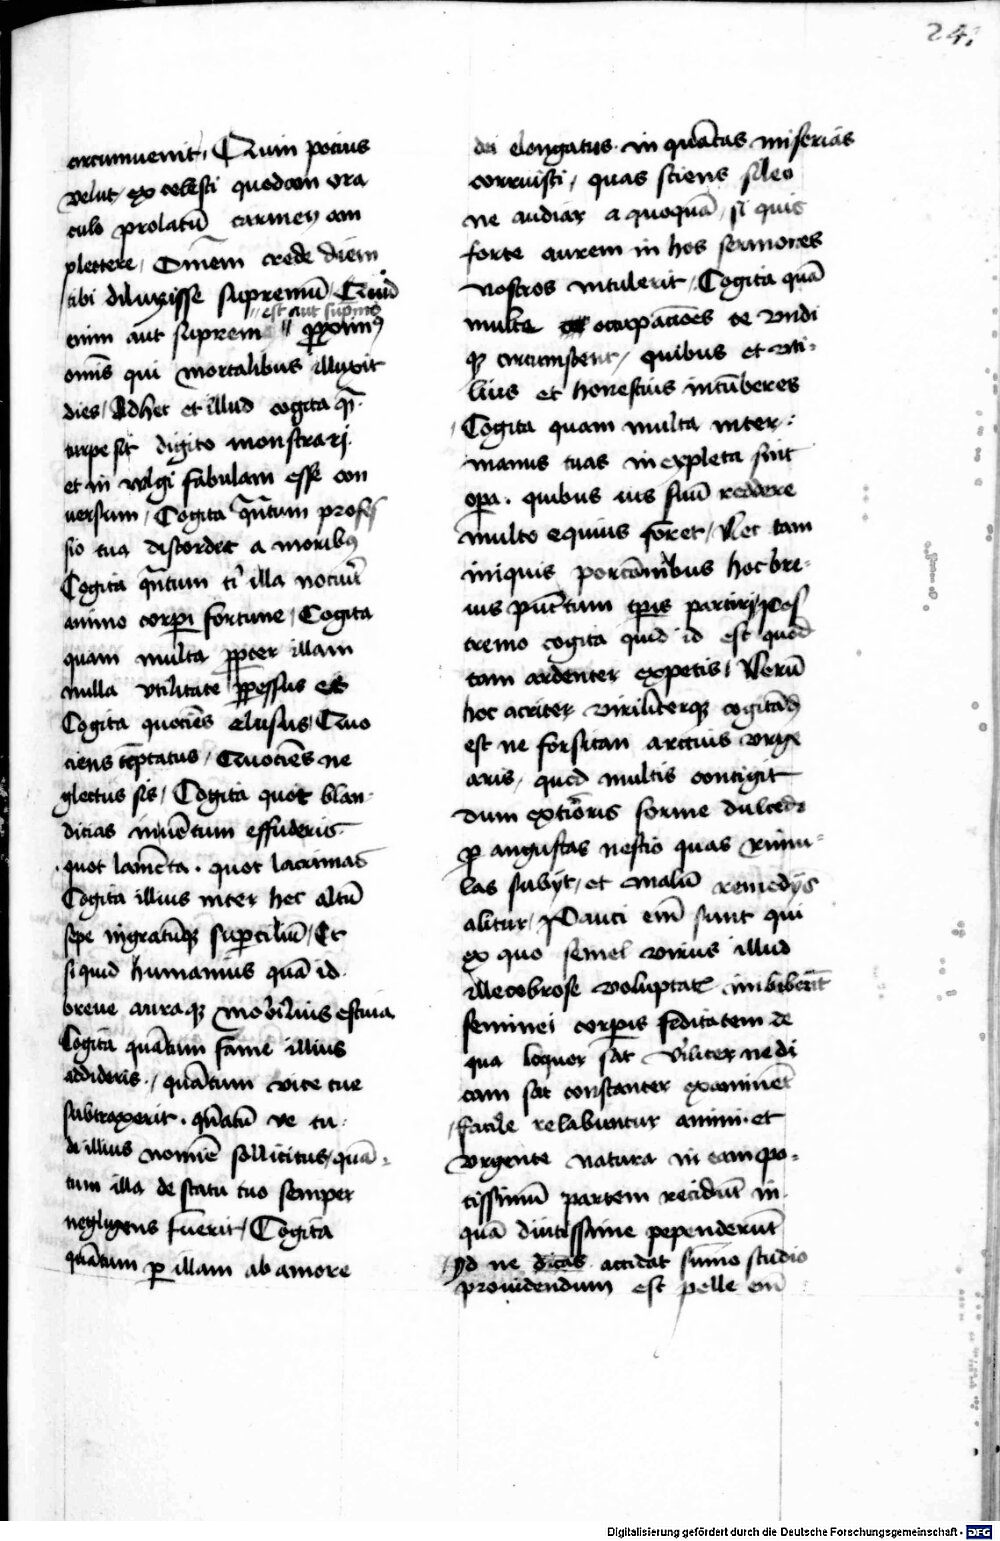 24.
circumuenit / Quin pocius
velut / ex celesti quodam ora
culo prolatū carmen am
plectere / Omnē crede diem
tibi diluxisse supremū / Quid
est aut supmo
enim aut suprem // pproximꝰ
omīs qui mortalibus illuxit
dies / Ad hec et illud cogita qᷓ
turpe sit digito monstrari
et in wlgi fabulam esse con
uersum / Cogita qᷓntum profes
sio tua discordet a moribꝰ
Cogita qᷓntum tⁱ illa nocuⁱt
animo corpi fortune / Cogita
quam multa ppter illam
nulla vtilitate ppessus es
Cogita quociēs elusus / Quo
ciens cōptatus / Quociēs ne
glectus sis / Cogita quot blan-
dicias in uentum effuderis
quot lamēta . quot lacrimas
Cogita illius inter hec altū
sepe ingratūqꝫ suꝑciliū / Et
si quid humanius quā id
breue auraqꝫ mobilius estiua
Cogita quātum fame illius
addideris / quātum vite tue
subtraxerit . quātū ve tu
de illius nomīe sollicitus / quā-
tum illa de statu tuo semper
negligens fuerit / Cogita
quātum ꝑ illam ab amore
dei elongatus in quātas miserias
corruisti / quas sciens sileo
ne audiar a quoquā / si quis
forte aurem in hos sermones
nostros intulerit / Cogita quā
multe occupacōēs te vndi
qꝫ circumstent / quibus et vti-
lius et honestius incūberes
Cogita quam multa inter-
manus tuas inexpleta sint
opa . quibus ius suū reddere
multo equius foret / Nec tam
iniquis porcōnibus hoc bre-
uis pūctum tꝑis partiri / Pos
tremo cogita quid id est quod
tam ardenter expetis / Verū
hoc acriter viriliterqꝫ cogitādū
est ne forsitan arctius vrge
aris / quod multis contigit
dum extⁱoris forme dulcedo
ꝑ angustas nescio quas rimu-
las subijt / et malū remedijs
alitur / Pauci em̄ sunt qui
ex quo semel virius illud
illecebrose voluptatꝭ imbiberūt
feminei corꝑis feditatem de
qua loquor sat vⁱliter ne di
cam sat constanter examinēt
facile relabuntur animi . et
vrgente natura in eam po-
tissimū partem recidūt in
quā diutissime pependerūt
Id ne dicas accidat summo studio
prouidendum est pelle em̄
Digitalisierung gefördert durch die Deutsche Forschungsgemeinschaft - DFG